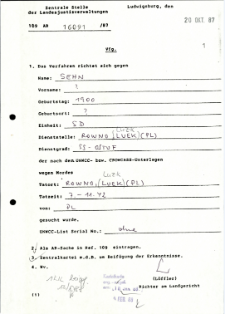 Zentrale Stelle
der Landesjustizverwaltungen
Ludwigsburg, den
20 OKT. 87
109 AR 16091 /87
Vfg.
1
1. Das Verfahren richtet sich gegen
Name: SEHN
Vorname: ?
Geburtstag: 1900
Geburtsort: ?
Einheit: SD
LUCK
Dienststelle: ROWNO, (LUEK)(PL)
Dienstgrad: SS-
der nach den UNWCC- bzw. CROWCASS-Unterlagen
wegen Mordes
LUCK
Tatort: ROWNO, (LUEK)(PL)
Tatzeit: 7.-11.42
von: PL
gesucht wurde.
UNWCC-List Serial No.: ohne
2. Als AR-Sache in Ref. 109 eintragen.
3. Zentralkartei u.d.B. um Beifügung der Erkenntnisse.
4. Wv.
(Löffler)
Richter am Landgericht
(1)